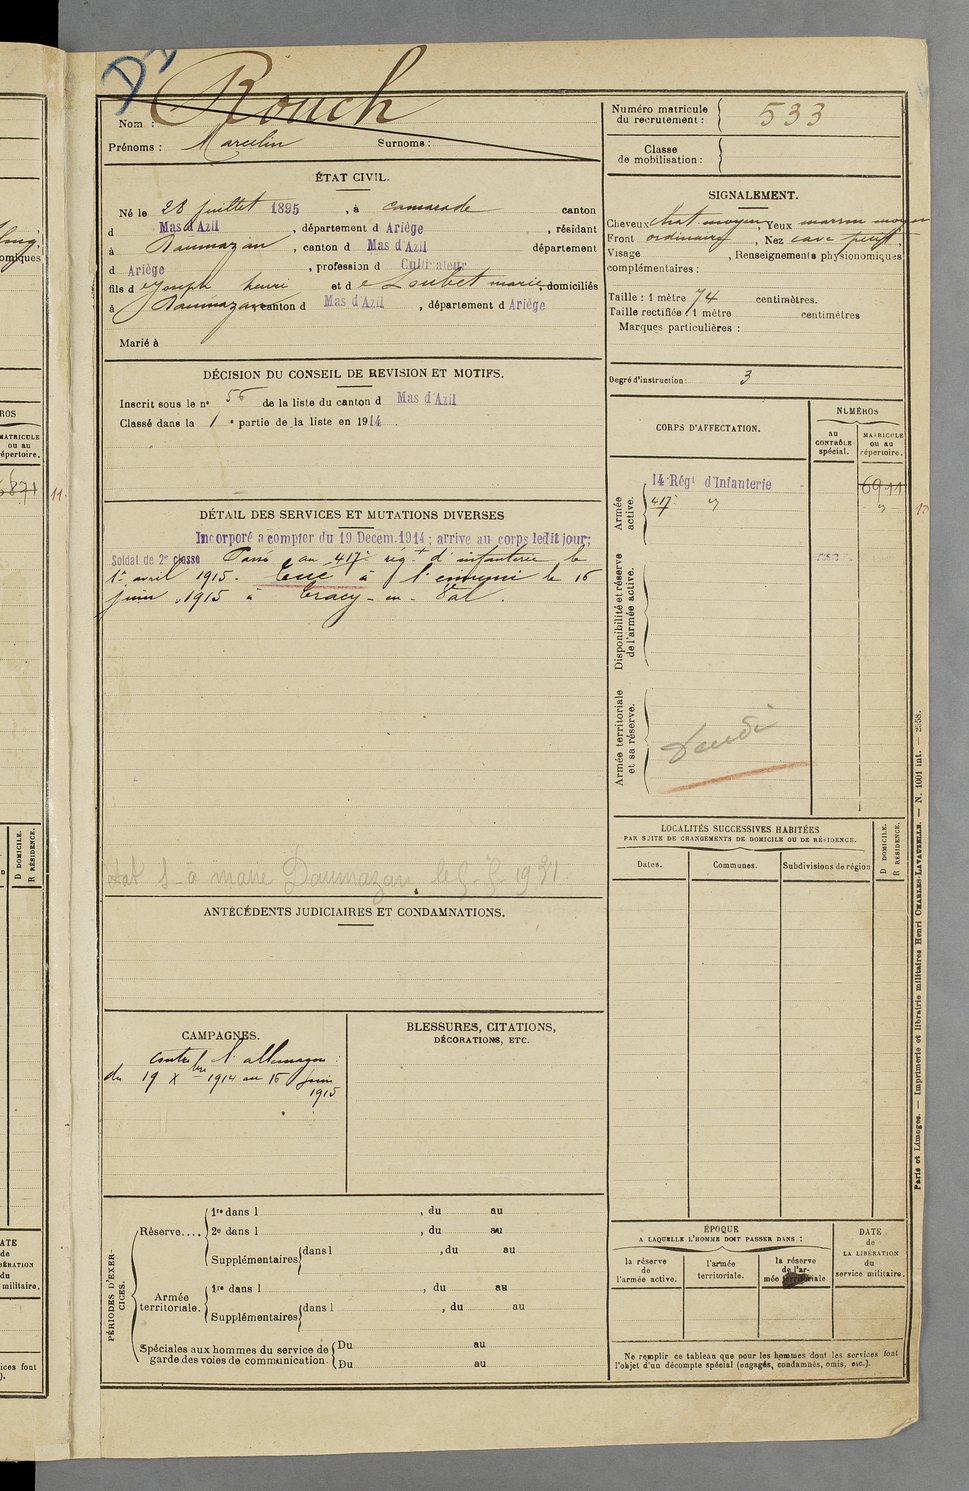 Dc
Nom : Rouch
Prénoms : Marcelin Surnoms :
Numéro matricule du recrutement : 533
Classe de mobilisation :
ÉTAT CIVIL.
Né le 28 juillet 1895, à Camarade canton
d Mas d'Azil, département d Ariège, résidant
à Daumazan, canton d Mas d'Azil département
d Ariège, profession d Cultivateur
fils d e Joseph henri et d e Loubet marie, domiciliés
à Daumazan, canton d Mas d'Azil, département d Ariège
Marié à
DÉCISION DU CONSEIL DE REVISION ET MOTIFS.
Inscrit sous le nº 56 de la liste du canton d Mas d'Azil
Classé dans la 1 e partie de la liste en 1914.
DÉTAIL DES SERVICES ET MUTATIONS DIVERSES
Incorporé a compter du 19 Decem. 1914; arrive au corps ledit jour;
Soldat de 2e classe Passé au 417e régt d'infanterie le
1er avril 1915. Tué à l'ennemi le 16
juin 1915 à Tracy-en-Val.
1931
ANTÉCÉDENTS JUDICIAIRES ET CONDAMNATIONS.
CAMPAGNES.
contre l'allemagne :
du 19 Xbre 1914 au 16 juin
1915
BLESSURES, CITATIONS,
DÉCORATIONS, ETC.
PÉRIODES D'EXERCICES.
Réserve....
1re dans l , du au
2e dans l , du au
Supplémentaires dans l , du au
Armée territoriale.
1re dans l , du au
Supplémentaires dans l , du au
Spéciales aux hommes du service de garde des voies de communication.
Du au
Du au
SIGNALEMENT.
Cheveux chat. moyen, Yeux marron moyen
Front ordinaire, Nez cave petit,
Visage , Renseignements physionomiques
complémentaires :
Taille : 1 mètre 74 centimètres.
Taille rectifiée 1 mètre centimètres
Marques particulières :
Degré d'instruction : 3
CORPS D'AFFECTATION.
NUMÉROS
au CONTRÔLE spécial.
MATRICULE ou au répertoire.
Armée active.
14 Régt d'Infanterie 6911
417e
Disponibilité et réserve de l'armée active.
Armée territoriale et sa réserve.
LOCALITÉS SUCCESSIVES HABITÉES
PAR SUITE DE CHANGEMENTS DE DOMICILE OU DE RÉSIDENCE.
Dates.
Communes.
Subdivisions de région
D DOMICILE.
R RÉSIDENCE.
ÉPOQUE
A LAQUELLE L'HOMME DOIT PASSER DANS :
la réserve de l'armée active.
l'armée territoriale.
la réserve de l'armée territoriale
DATE de LA LIBÉRATION du service militaire.
Ne remplir ce tableau que pour les hommes dont les services font
l'objet d'un décompte spécial (engagés, condamnés, omis, etc.).
Paris et Limoges. — Imprimerie et librairie militaires Henri CHARLES-LAVAUZELLE. — N. 1001 int. — 2558.